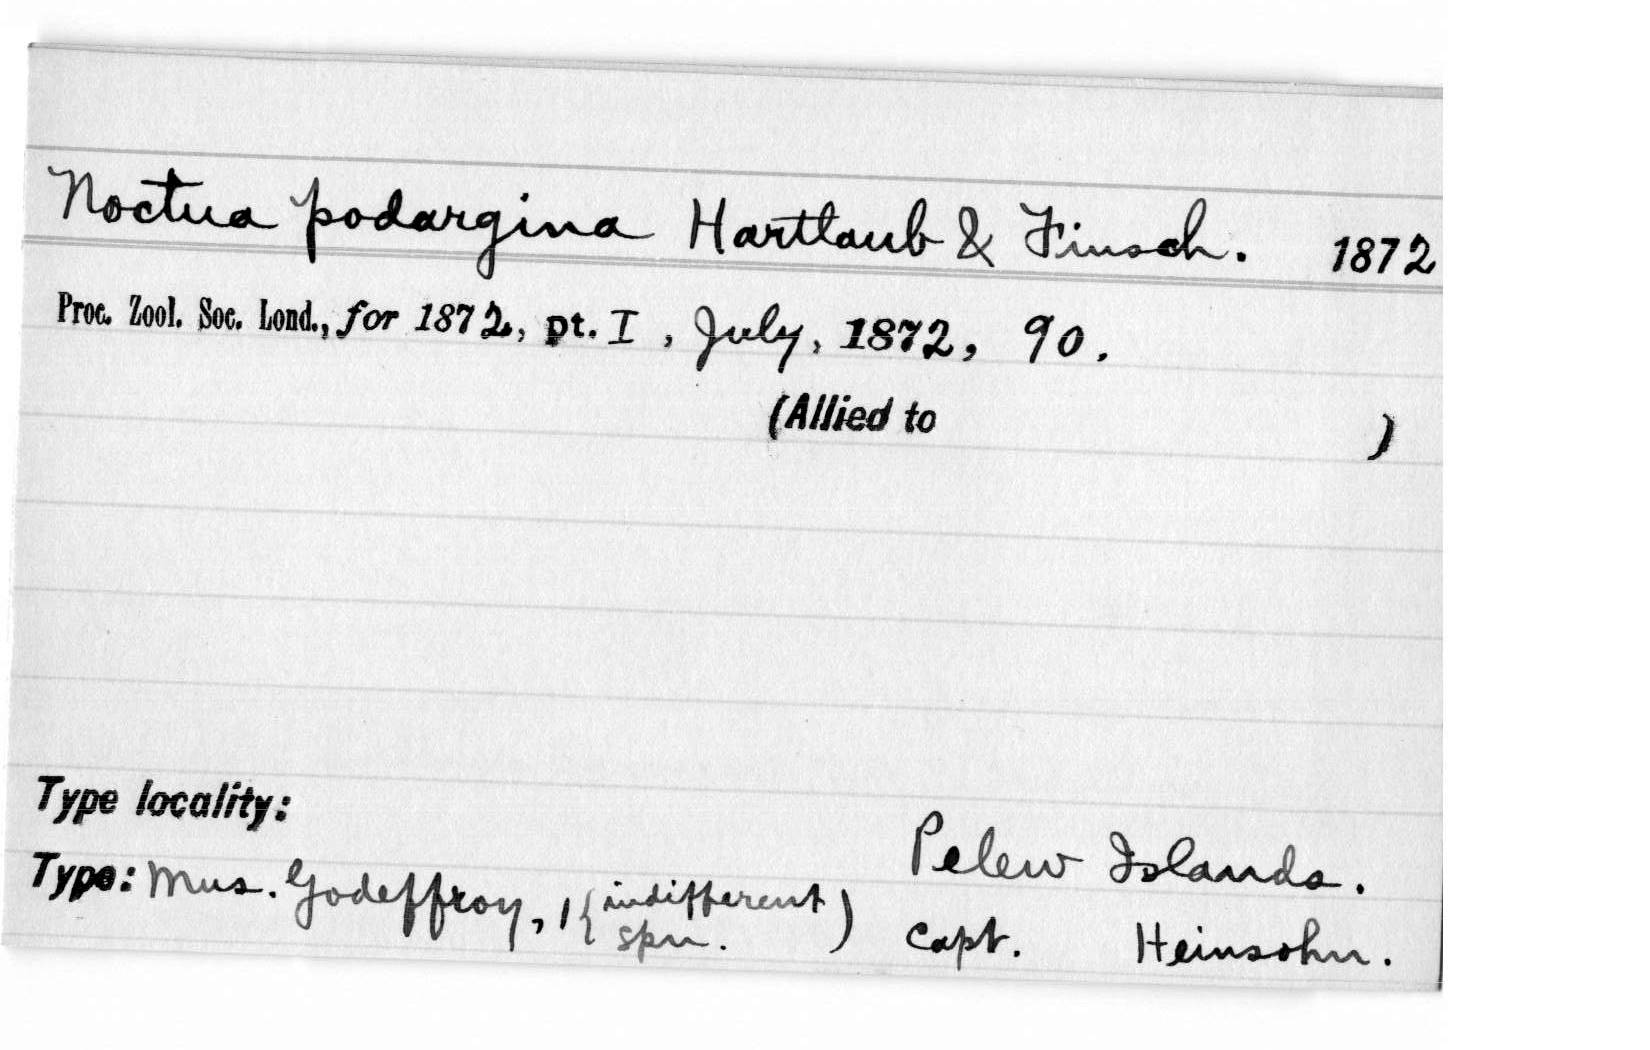 Noctua podargina Hartlaub & Finsch. 1872
Proc. Zool. Soc. Lond., for 1872, pt. I, July, 1872, 90.
(Allied to )
Type locality:
Pelew Islands.
Type: Mus. Godeffroy, 1 { indifferent spn. ) Capt. Heinsohn.